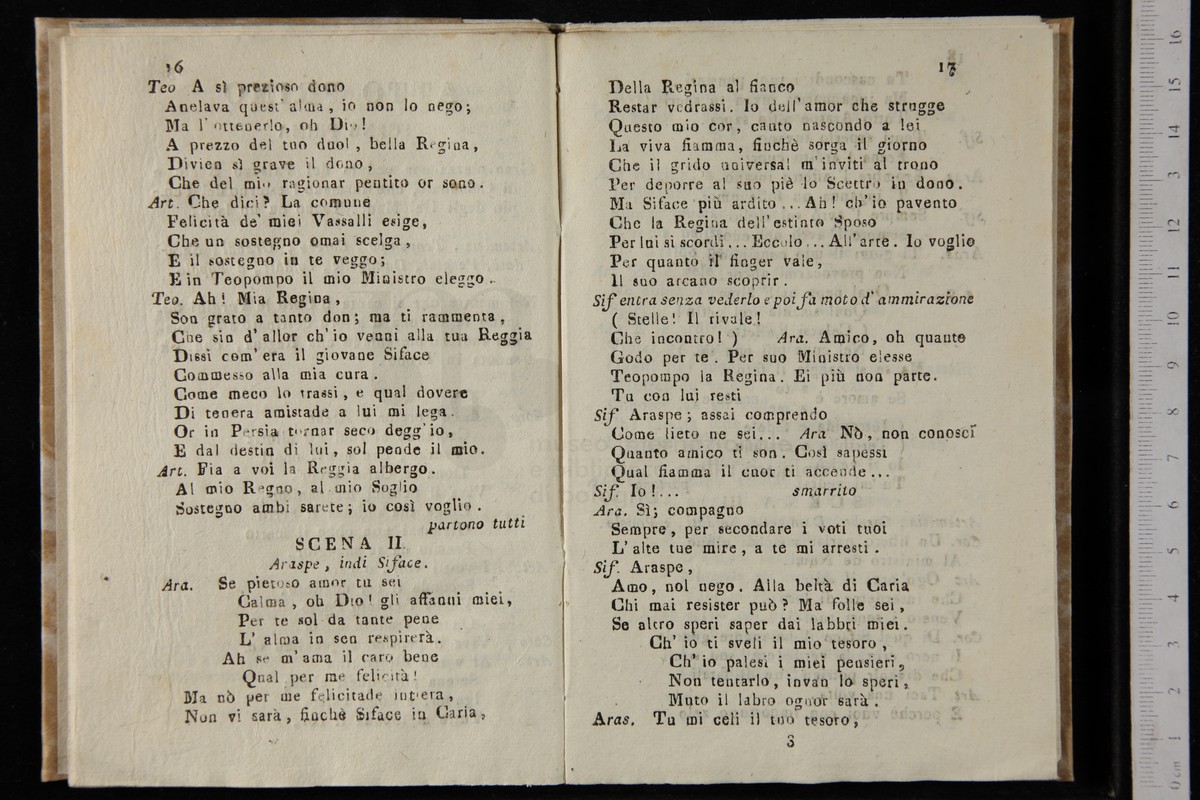 16
Teo A sì prezioso dono
Anelava quest' alma, io non lo nego;
Ma l' ottenerlo, oh Dio!
A prezzo del tuo duol, bella Regina,
Divien sì grave il dono,
Che del mio ragionar pentito or sono.
Art. Che dici? La comune
Felicità de' miei Vassalli esige,
Che un sostegno omai scelga,
E il sostegno in te veggo;
E in Teopompo il mio Ministro eleggo.
Teo. Ah! Mia Regina,
Son grato a tanto don; ma ti rammenta,
Che sin d' allor ch' io venni alla tua Reggia
Dissi com' era il giovane Siface
Commesso alla mia cura.
Come meco lo trassi, e qual dovere
Di tenera amistade a lui mi lega.
Or in Persia tornar seco degg' io,
E dal destin di lui, sol pende il mio.
Art. Fia a voi la Reggia albergo.
Al mio Regno, al mio Soglio
Sostegno ambi sarete; io così voglio.
partono tutti
SCENA II.
Araspe, indi Siface.
Ara. Se pietoso amor tu sei
Calma, oh Dio! gli affanni miei,
Per te sol da tante pene
L' alma in sen respirerà.
Ah se m' ama il caro bene
Qual per me felicità!
Ma nò per me felicitade intera,
Non vi sarà, finchè Siface in Caria,
17
Della Regina al fianco
Restar vedrassi. Io dell' amor che strugge
Questo mio cor, cauto nascondo a lei
La viva fiamma, finchè sorga il giorno
Che il grido universal m' inviti al trono
Per deporre al suo piè lo Scettro in dono.
Ma Siface più ardito... Ah! ch' io pavento
Che la Regina dell' estinto Sposo
Per lui si scordi... Eccolo... All' arte. Io voglio
Per quanto il finger vale,
Il suo arcano scoprir.
Sif entra senza vederlo e poi fa moto d' ammirazione
( Stelle! Il rivale!
Che incontro! ) Ara. Amico, oh quanto
Godo per te. Per suo Ministro elesse
Teopompo la Regina. Ei più non parte.
Tu con lui resti
Sif Araspe; assai comprendo
Come lieto ne sei... Ara Nò, non conosci
Quanto amico ti son. Così sapessi
Qual fiamma il cuor ti accende...
Sif. Io!... smarrito
Ara. Sì; compagno
Sempre, per secondare i voti tuoi
L' alte tue mire, a te mi arresti.
Sif. Araspe,
Amo, nol nego. Alla beltà di Caria
Chi mai resister può? Ma folle sei,
Se altro speri saper dai labbri miei.
Ch' io ti sveli il mio tesoro,
Ch' io palesi i miei pensieri,
Non tentarlo, invan lo speri,
Muto il labro ognor sarà.
Aras. Tu mi celi il tuo tesoro,
3